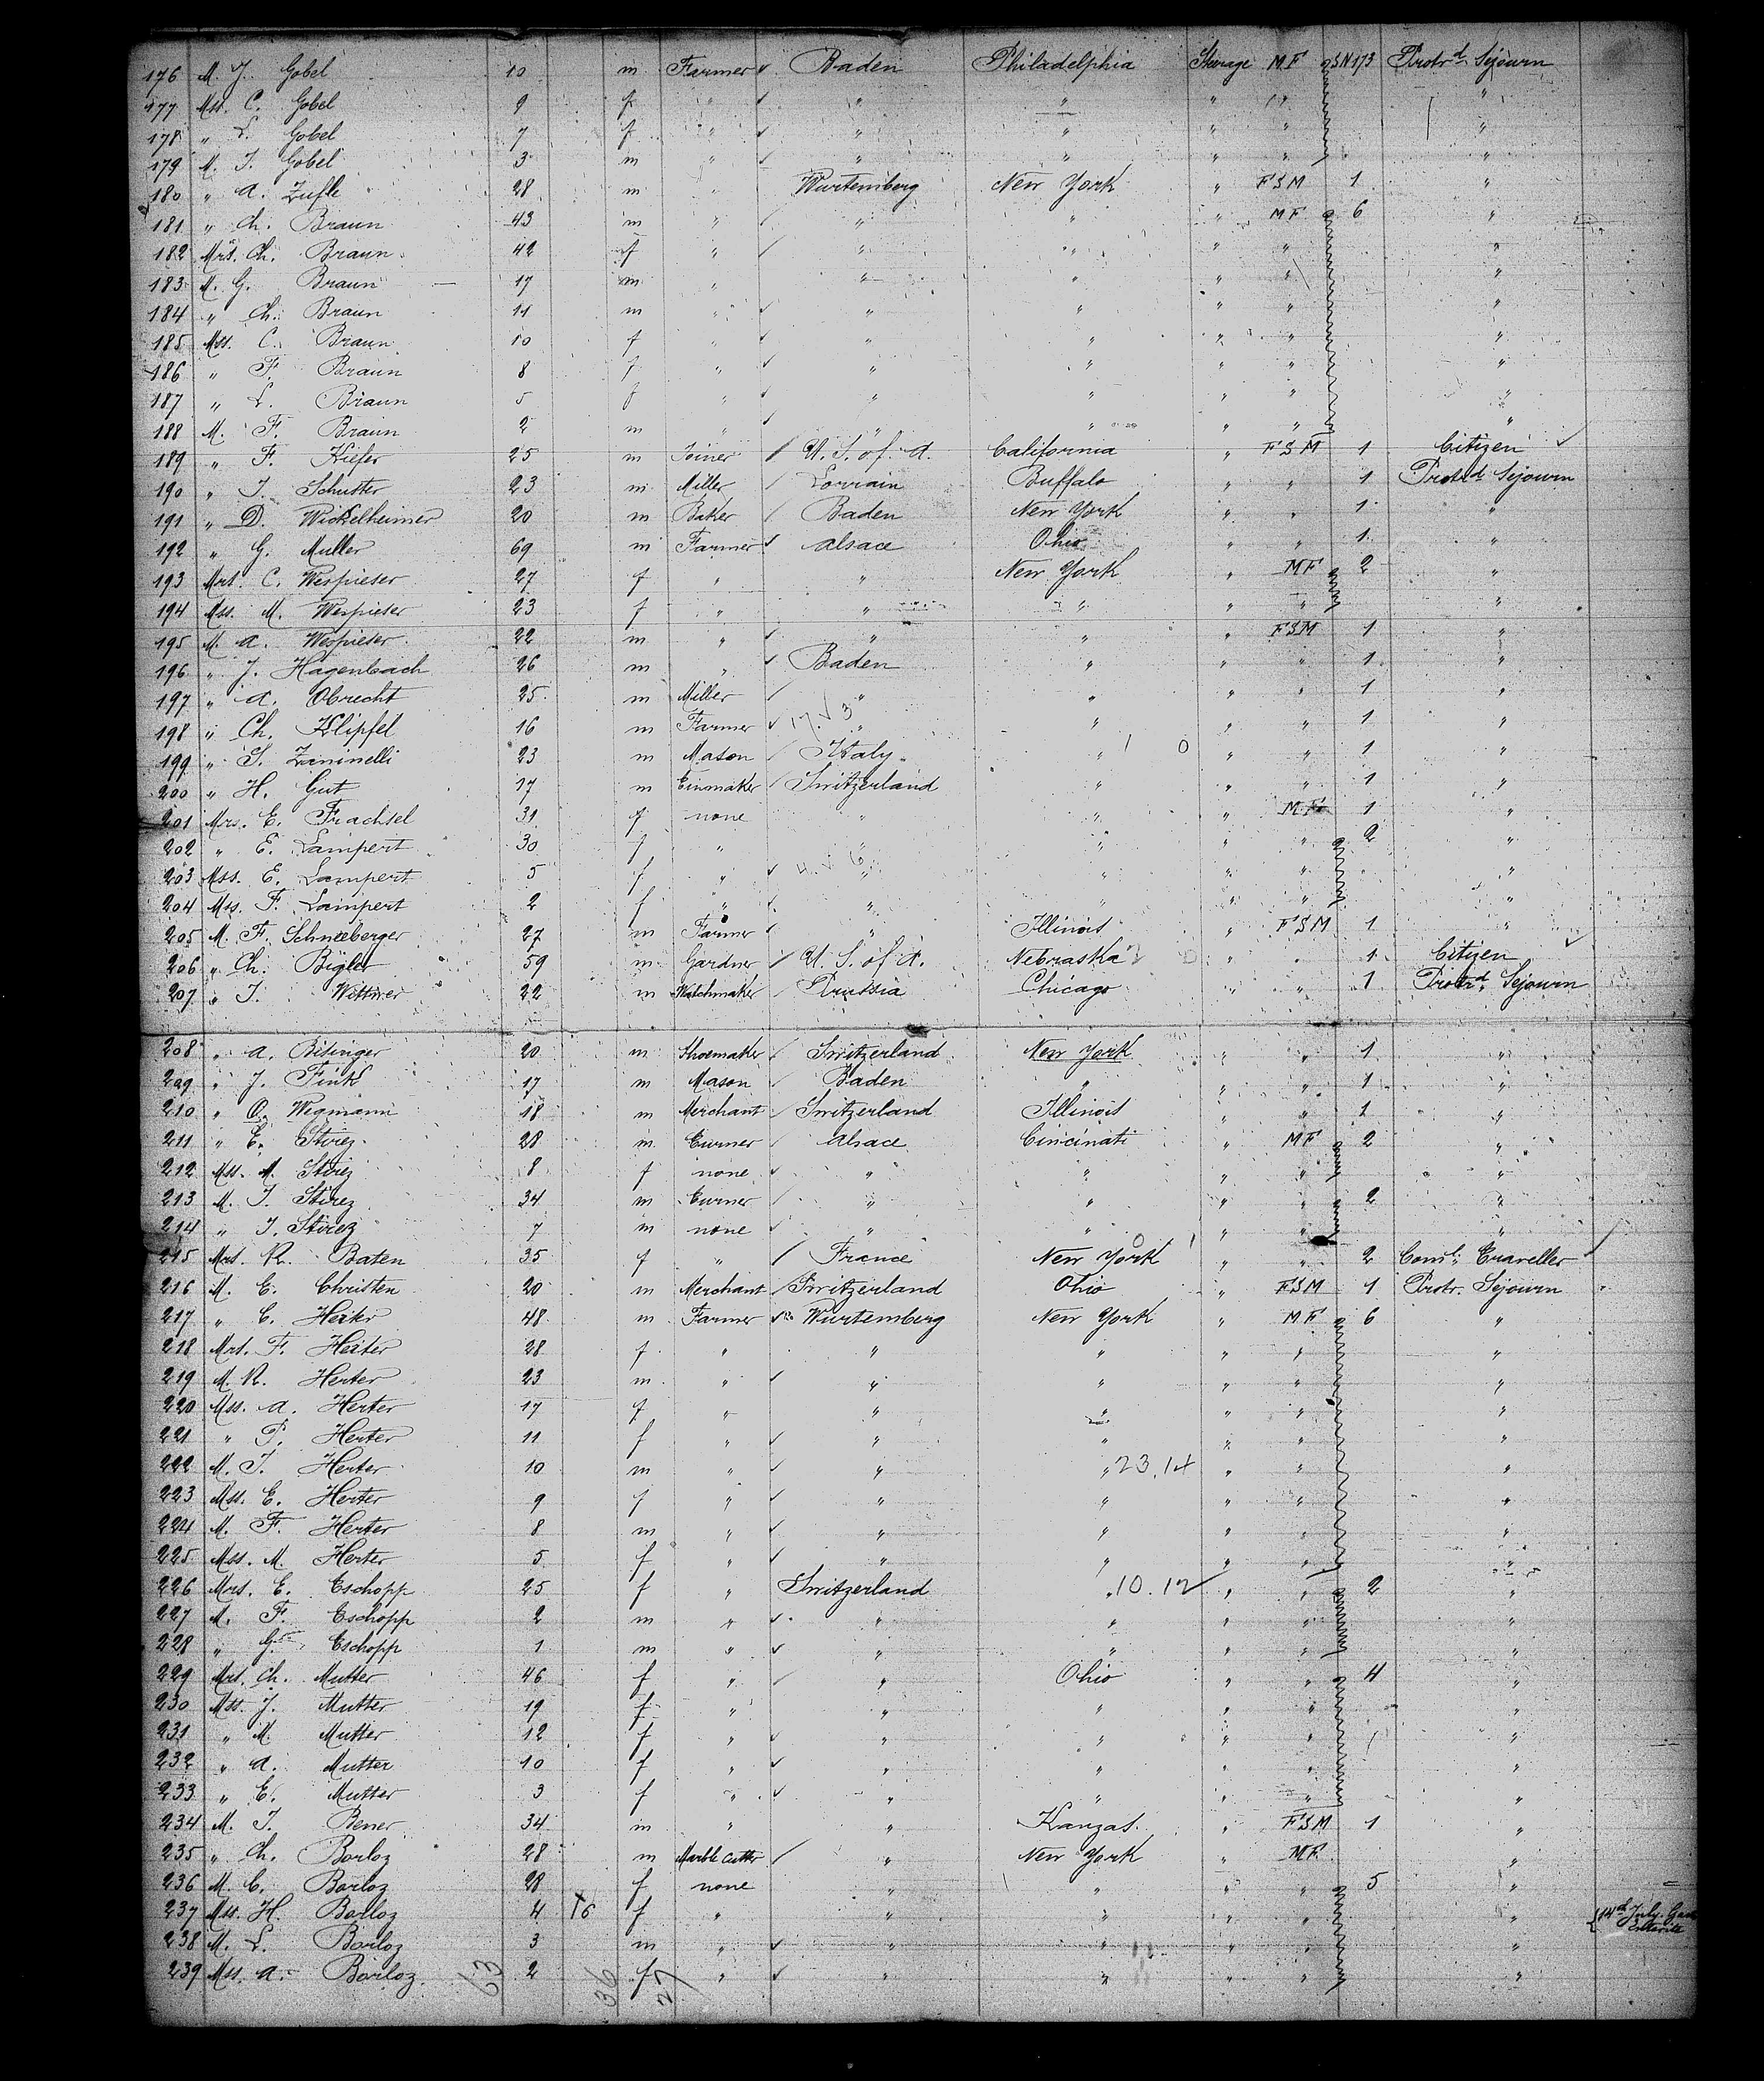 176 M. J. Gobel 10 m Farmer ✓ Baden Philadelphia Steerage MF SN173 Protrd Sejourn
177 Mss. C. Gobel 9 f " ✓ " " " " "
178 " L. Gobel 7 f " ✓ " " " " "
179 M. J. Gobel 3 m " ✓ " " " " "
180 " A. Zufle 28 m " Wurtemberg New York " FSM 1 "
181 " Ch. Braun 43 m " / " " " MF 6 "
182 Mrs. Ch. Braun 42 f " / " " " " "
183 M. G. Braun 17 m " " " " " "
184 " Ch. Braun 11 m " ✓ " " " " "
185 Mss. C. Braun 10 f " ✓ " " " " "
186 " F. Braun 8 f " ✓ " " " " "
187 " L. Braun 5 f " ✓ " " " " "
188 M. F. Braun 2 m " ✓ " " " " "
189 " F. Kiefer 25 m Joiner / U. S. of A. California " FSM 1 Citizen ✓
190 " J. Schutter 23 m Miller / Lorrain Buffalo " " 1 Protrd Sejourn
191 " D. Wickelheimer 20 m Baker / Baden New York " " 1 "
192 " G. Muller 69 m Farmer ✓ Alsace Ohio " " 1 "
193 Mrs. C. Wespieser 27 f " " New York " MF 2 "
194 Mss. M. Wespieser 23 f " " " " " "
195 M. A. Wespieser 22 m " ✓ " " " FSM 1 "
196 " J. Hagenbach 26 m " ✓ Baden " " " 1 "
197 " A. Obrecht 25 m Miller / " " " " 1 "
198 " Ch. Klipfel 16 m Farmer ✓ 17 ✓ 3 " " " " 1 "
199 " S. Zaninelli 23 m Mason / Italy " 1 0 " " 1 "
200 " H. Gut 17 m Tinmaker / Switzerland " " " 1 "
201 Mrs. E. Trachsel 31 f none " " " MF 1 "
202 " E. Lampert 30 f " " " " " 2 "
203 Mss. E. Lampert 5 f " ✓ " " " " "
204 Mss. F. Lampert 2 f " ✓ " " " " "
205 M. F. Schneeberger 27 m Farmer ✓ " Illinois " FSM 1 "
206 " Ch. Bigler 59 m Gardner / U. S. of A. Nebraska " " 1 Citizen ✓
207 " J. Wittmer 22 m Watchmaker / Prussia Chicago " " 1 Protrd Sejourn
208 " A. Bisinger 20 m Shoemaker / Switzerland New York " " 1 "
209 " J. Fink 17 m Mason / Baden " " " 1 "
210 " O. Wegmann 18 m Merchant / Switzerland Illinois " " 1 "
211 " E. Stirez 28 m Turner / Alsace Cincinati " MF 2 "
212 Mss. M. Stirez 8 f none ✓ " " " " "
213 M. J. Stirez 34 m Turner / " " " " 2 "
214 " J. Stirez 7 m none ✓ " " " " "
215 Mrs. R. Baten 35 f " / France New York " " 2 Coml. Traveller ✓
216 M. E. Christen 20 m Merchant / Switzerland Ohio " FSM 1 Protr. Sejourn
217 " C. 48 m Farmer ✓ Wurtemberg New York " MF 6 "
218 Mrs. F. 28 f " " " " " "
219 M. R. Herter 23 m " ✓ " " " " "
220 Mss. A. Herter 17 f " " " " " "
221 " P. Herter 11 f " ✓ " " " " "
222 M. J. Herter 10 m " ✓ " " 23.14 " " "
223 Mss. E. Herter 9 f " ✓ " " " " "
224 M. F. Herter 8 m " ✓ " " " " "
225 Mss. M. Herter 5 f " ✓ " " " " "
226 Mrs. E. Tschopp 25 f " Switzerland " 10.12 ✓ " " 2 "
227 M. F. Tschopp 2 m " ✓ " " " " "
228 " G. Tschopp 1 m " ✓ " " " " "
229 Mrs. Ch. Mutter 46 f " / " Ohio " " 4 "
230 Mss. J. Mutter 19 f " " " " " "
231 " M. Mutter 12 f " ✓ " " " " "
232 " A. Mutter 10 f " ✓ " " " " "
233 " E. Mutter 3 f " ✓ " " " " "
234 M. J. Bener 34 m " " Kanzas. " FSM 1 "
235 " Ch. Borloz 28 m Marble Cutter / " New York " MF. "
236 M. C. Borloz 28 f none " " " " 5 "
237 Mss. H. Borloz 4 T6 f " " " " " " 14d July
238 M. L. Borloz 3 m " ✓ " " " " "
239 Mss. A. Borloz 2 f " ✓ " " " " "
63 36 27